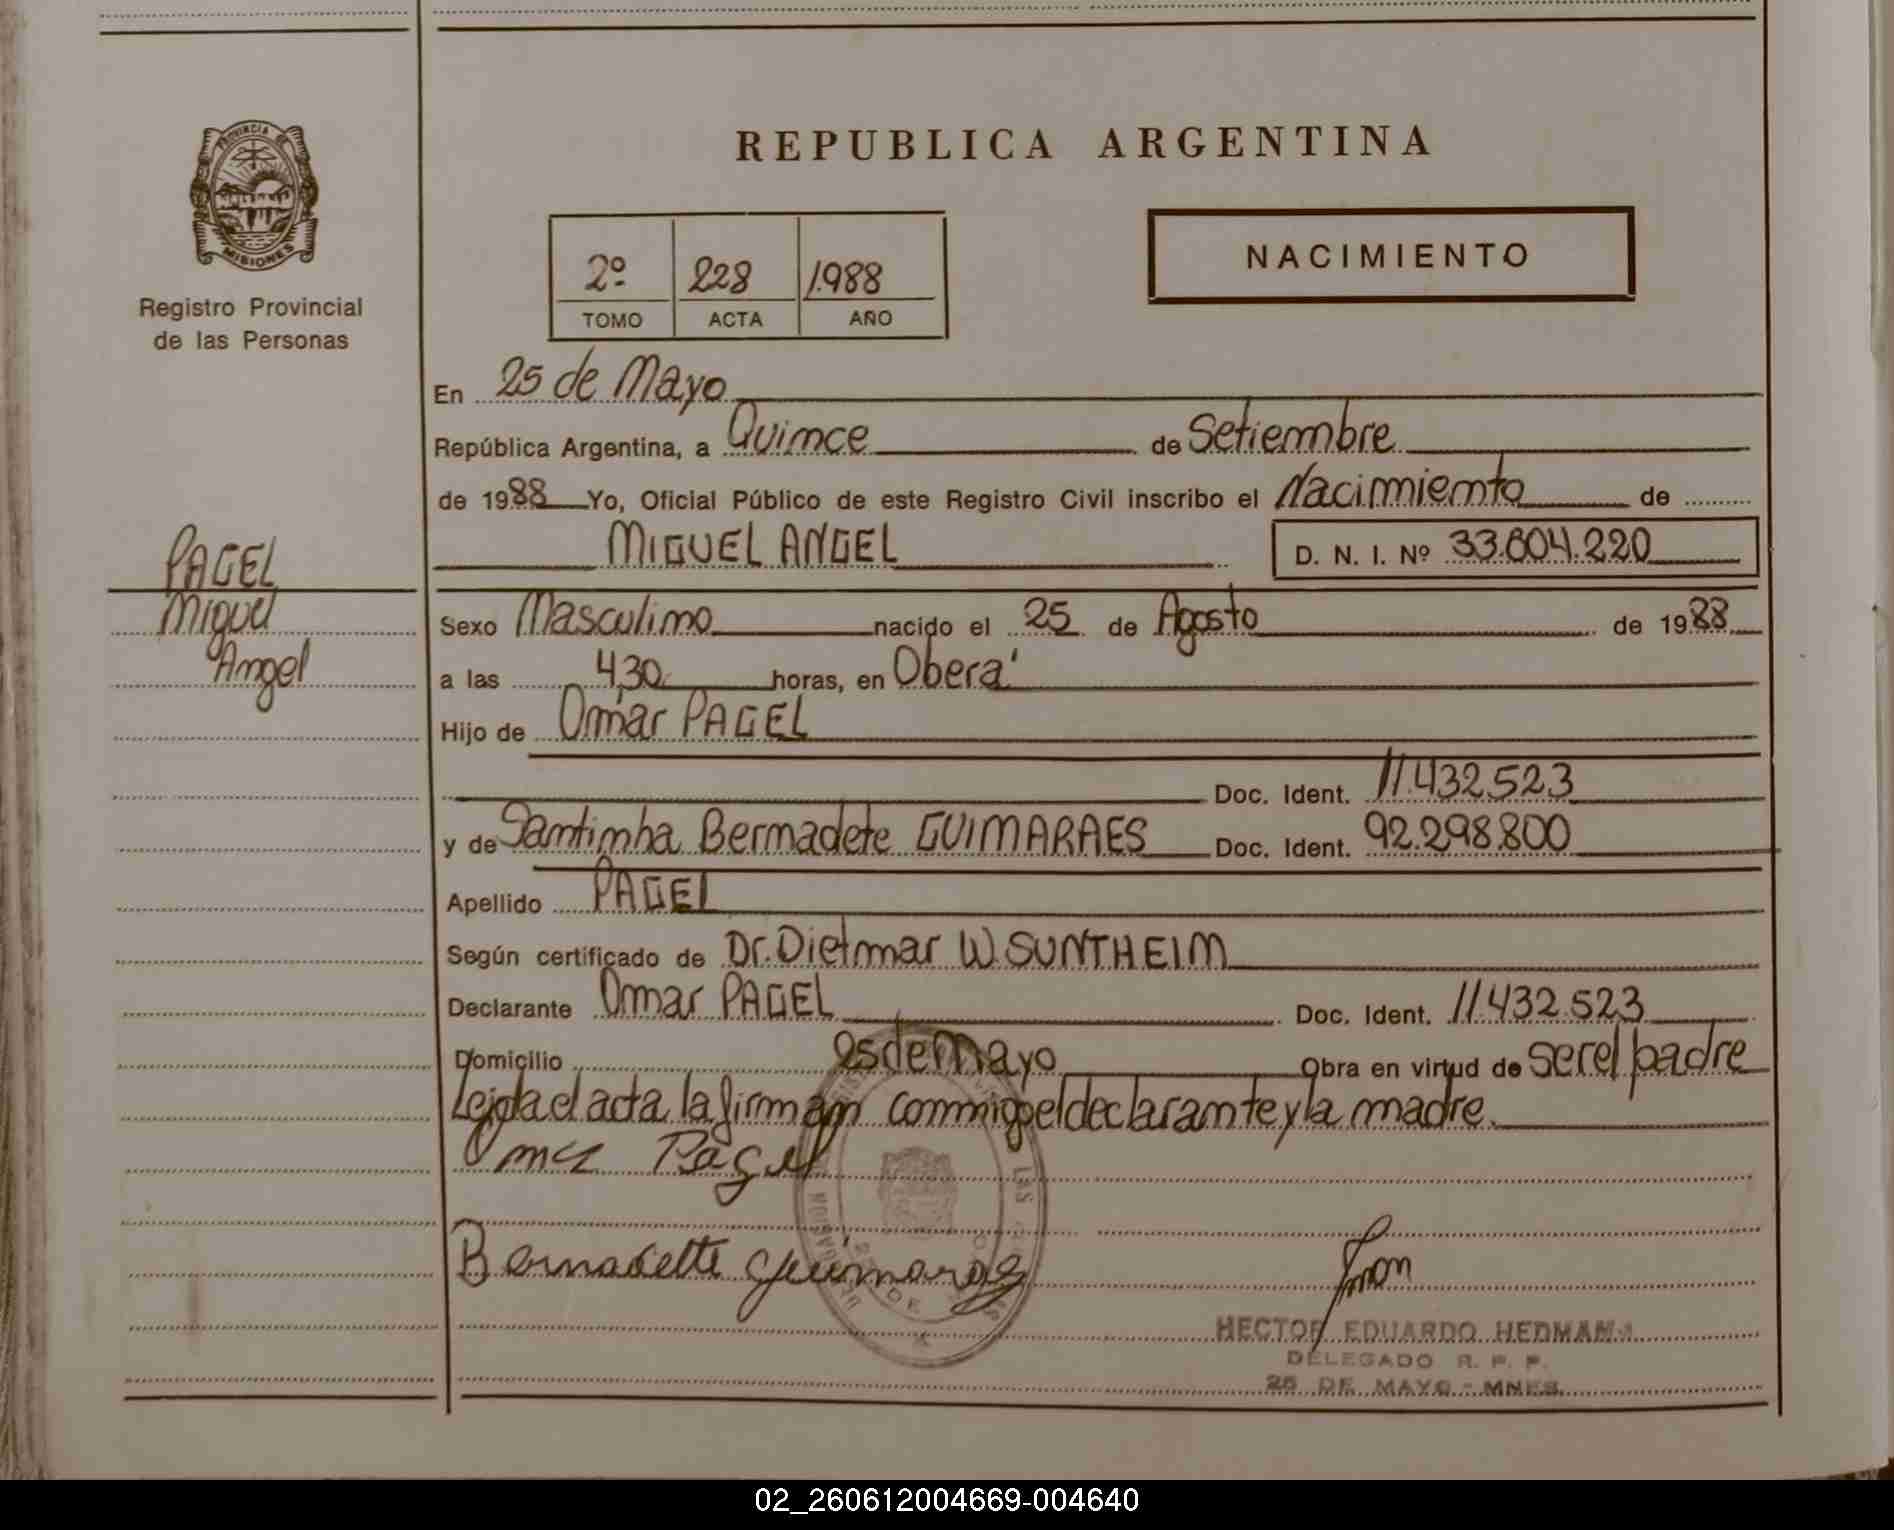 PROVINCIA DE
MISIONES
Registro Provincial
de las Personas
REPUBLICA ARGENTINA
2º 228 1.988
TOMO ACTA AÑO
NACIMIENTO
En 25 de Mayo
República Argentina, a Quince de Setiembre
de 1988 Yo, Oficial Público de este Registro Civil inscribo el Nacimiento de
MIGUEL ANGEL D. N. I. Nº 33.604.220
PAGEL
Miguel
Angel
Sexo Masculino nacido el 25 de Agosto de 1988
a las 4,30 horas, en Oberá
Hijo de Omar PAGEL
Doc. Ident. 11.432.523
y de Santinha Bernadete GUIMARAES Doc. Ident. 92.298.800
Apellido PAGEL
Según certificado de Dr. Dietmar W. SUNTHEIM
Declarante Omar PAGEL Doc. Ident. 11.432.523
Domicilio 25 de Mayo Obra en virtud de ser el padre
Leida el acta la firman conmigo el declarante y la madre.
Omar Pagel
Bernadette Guimaraes
HECTOR EDUARDO HEDMAN
DELEGADO R. P. P.
25 DE MAYO - MNES.
02_260612004669-004640